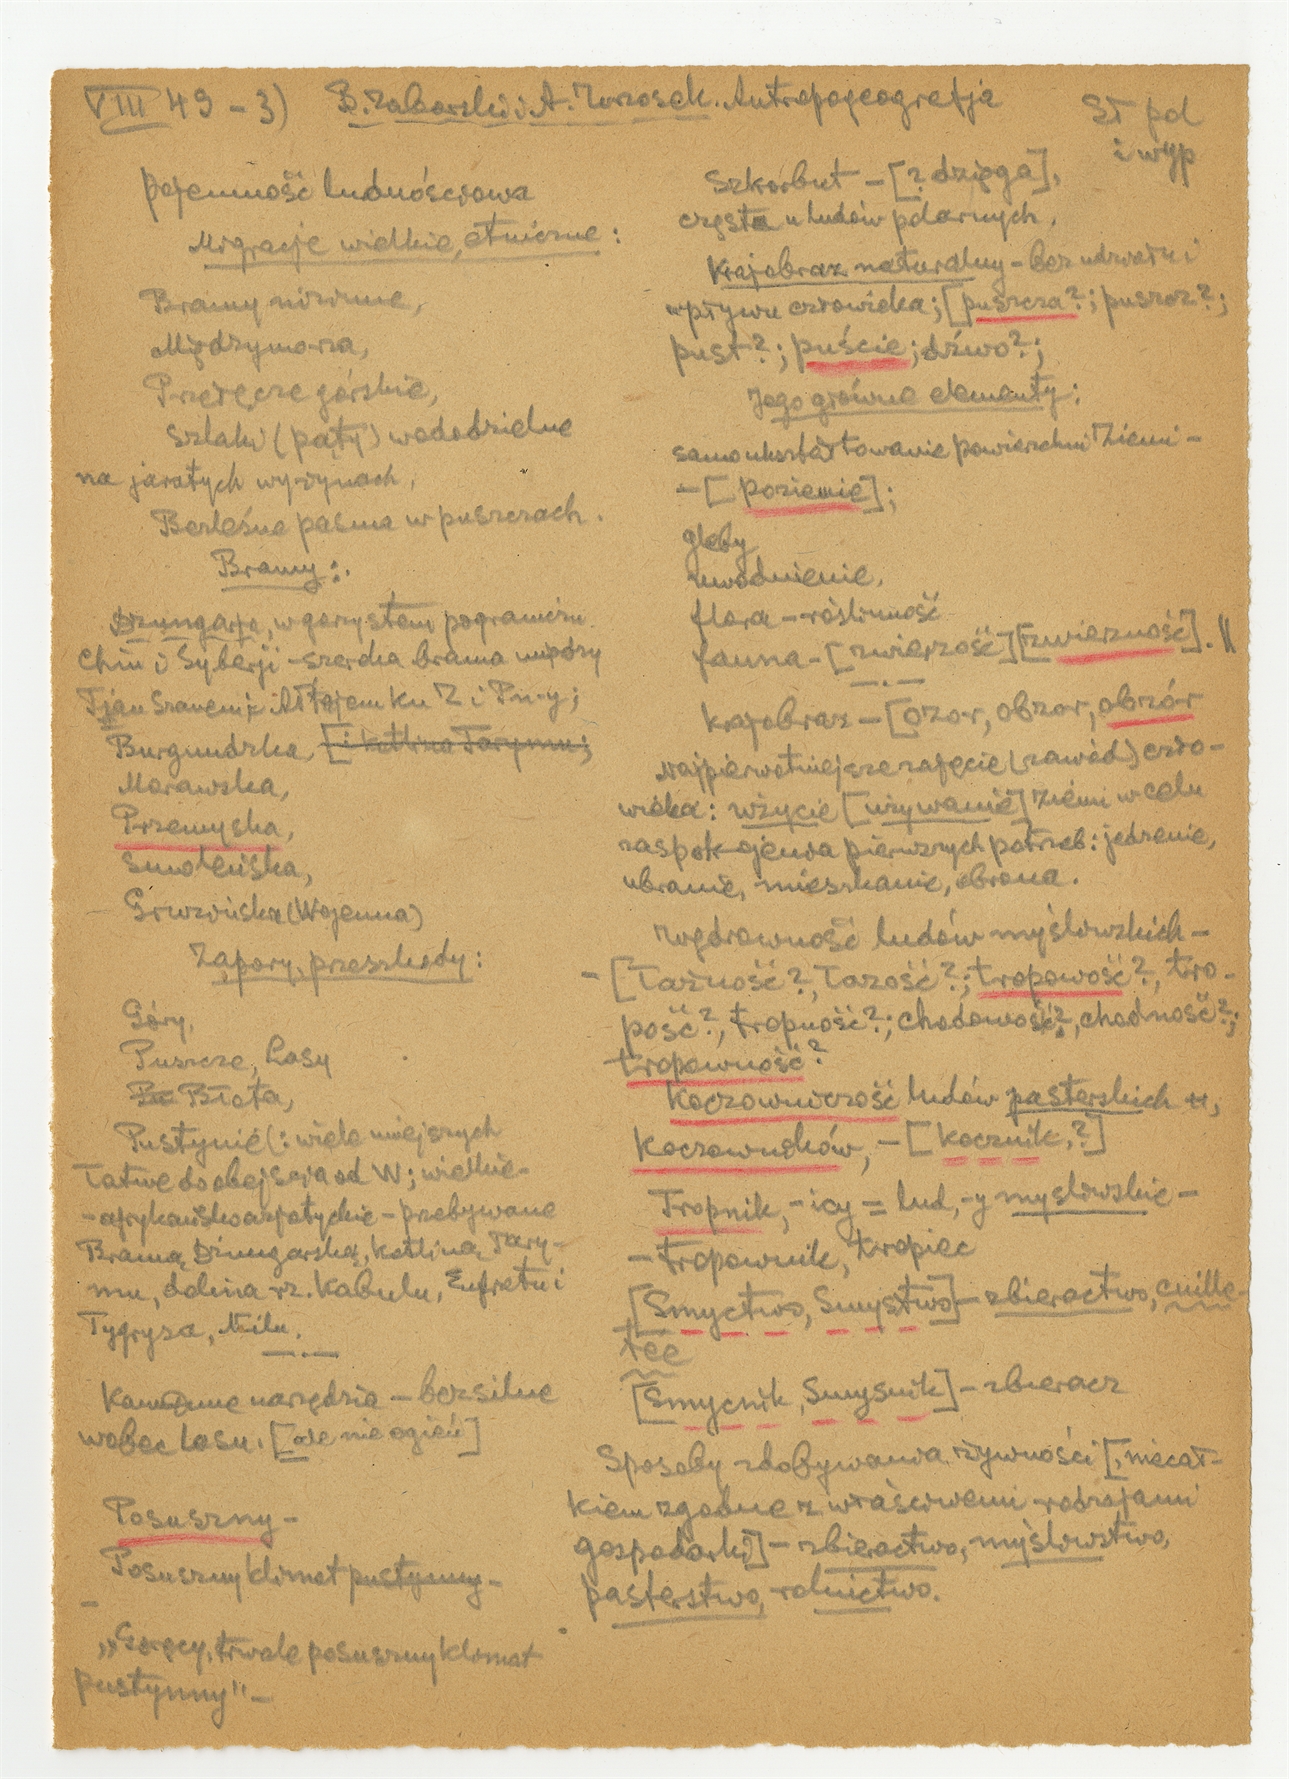 VIII 49 - 3) B. Zaborski i A. Wrzosek. Antropogeografja
St pd
i wyp
Pojemność ludnościowa
Migracje wielkie, etniczne:
Bramy nizinne,
Międzymorza,
Przełęcze górskie,
szlaki (pąty) wododzielne
na jaratych wyżynach,
Bezleśne pasma w puszczach.
Bramy:
Dżungarja, w górzystem pograniczu
Chin i Syberji - szeroka brama między
Tjan Szanem i Ałtajem ku Z i Pn-y;
Burgundzka, [i kotlina Tarymu;
Morawska,
Przemyska,
Smoleńska,
Gruzińska (Wojenna)
Zapory, przeszkody:
Góry,
Puszcze, Lasy
Bo Błota,
Pustynie (: wiele mniejszych
łatwe do obejścia od W; wielkie -
- afrykańskoazjatyckie - przebywane
Bramą Dżungarską, kotliną Tary-
mu, dolina rz. Kabulu, Eufratu i
Tygrysa, Nilu.
Kamienne narzędzia - bezsilne
wobec lasu. [ale nie ogień]
Posuszny -
Posuszny klimat pustynny -
„Gorący, trwale posuszny klimat
pustynny" -
Szkorbut - [? dzięga],
częsta u ludów polarnych.
Krajobraz naturalny - bez udziału i
wpływu człowieka; [puszcza?; puszcz?;
pust?; puście; dziwo?;
Jego główne elementy:
samoukształtowanie powierzchni Ziemi -
- [poziemie];
gleby
nawodnienie,
flora - roślinność
fauna - [zwierzość] [zwierzność]. ||
Krajobraz - [ozor, obzor, obzór
Najpierwotniejsze zajęcie (zawód) czło-
wieka: użycie [używanie] ziemi w celu
zaspokojenia pierwszych potrzeb: jedzenie,
ubranie, mieszkanie, obrona.
Wędrowność ludów myśliwskich -
- [łaźność?, łazość?; tropowość?, tro-
pość?, tropność?; chodowość?, chodność?;
tropowność?
Koczowniczość ludów pasterskich
Koczowników, - [kocznik,?]
Tropnik, - icy = lud, -y myśliwskie -
- tropownik, tropiec
[Smyctwo, Smystwo] - zbieractwo, cuille-
tée
[Smycnik, Smysnik] - zbieracz
Sposoby zdobywania żywności [, niecał-
kiem zgodne z właściwemi rodzajami
gospodarki] - zbieractwo, myśliwstwo,
pasterstwo, rolnictwo.